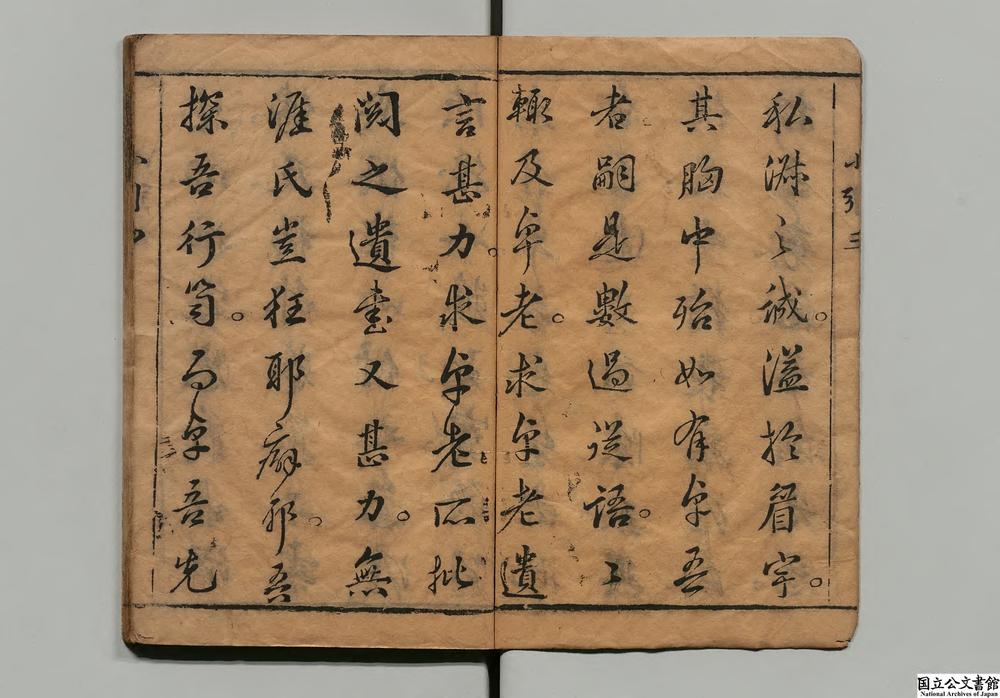 私淑之誠。溢於眉宇。
其胸中殆如有卓吾
者嗣是數過從語。〻
輙及卓老。求卓老遺
言甚力。求卓老所批
閱之遺書又甚力。無
涯氏豈狂耶癖耶。吾
探吾行笥。而卓吾先
小引 三
国立公文書館
National Archives of Japan